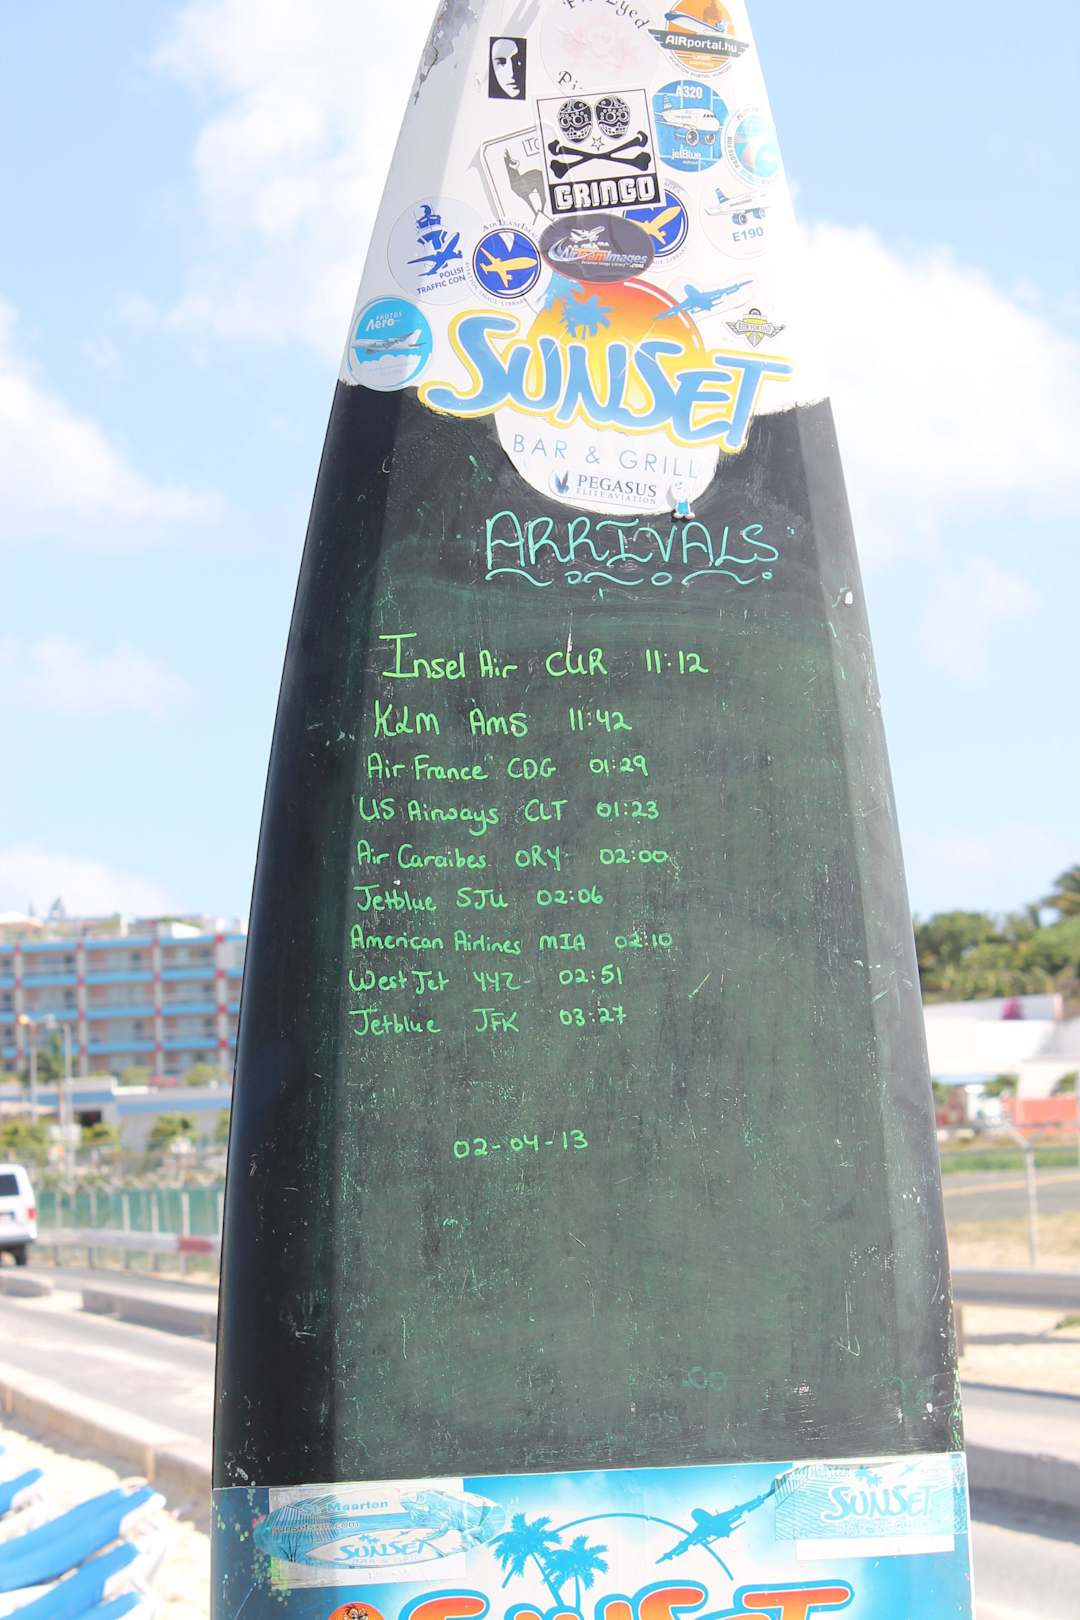 AIRportal.hu
A320
jetBlue
GRINGO
E190
AirTeamImages
POLISI
TRAFFIC CON
PHOTOS
Aero
SUNSET
BAR & GRILL
PEGASUS
ELITE AVIATION
ARRIVALS
Insel Air CUR 11:12
KLM AMS 11:42
Air France CDG 01:29
US Airways CLT 01:23
Air Caraibes ORY 02:00
Jetblue SJU 02:06
American Airlines MIA 02:10
West Jet YYZ 02:51
Jetblue JFK 03:27
02-04-13
St. Maarten
SUNSET
BAR & GRILL
SUNSET
SUNSET